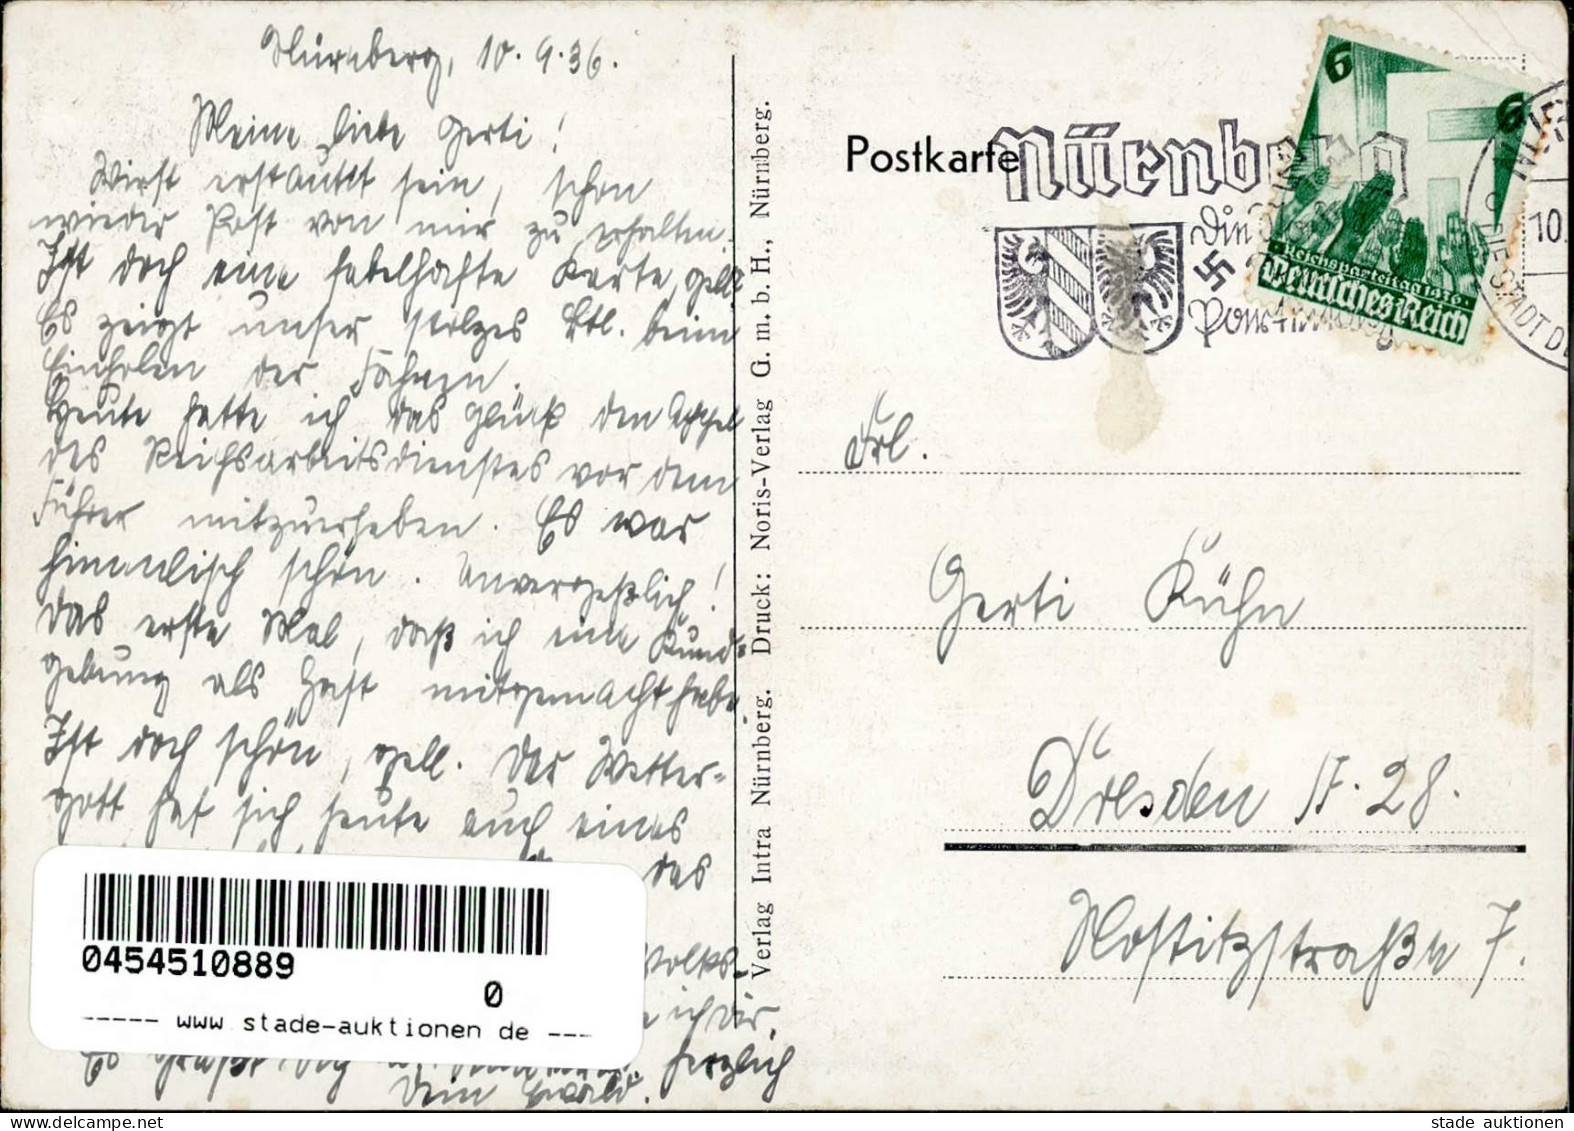 Nürnberg, 10.9.36.
Meine liebe Gerti!
Wirst erstaunt sein, schon
wieder Post von mir zu erhalten.
Ist doch eine fabelhafte Karte, gell?
Es zeigt unser stolzes Btl. beim
Einholen der Fahnen.
Heute hatte ich das Glück den Appell
des Reichsarbeitsdienstes vor dem
Führer mitzuerleben. Es war
himmlisch schön. Unvergeßlich!
Das erste Mal, daß ich eine Kund=
gebung als Gast mitgemacht habe.
Ist doch schön, gell. Der Wetter-
gott hat sich heute auch eines
das
Volks-
ich Dir.
Es grüßt Dich herzlich
Dein Ewald.
0454510889
0
----- www stade-auktionen de ---
Verlag Intra Nürnberg. Druck: Noris-Verlag G. m. b. H., Nürnberg.
Postkarte
Nürnberg
Die
6
6
Reichsparteitag 1936
Deutsches Reich
10.
DIE STADT DE
Frl.
Gerti Kühn
Dresden A. 28.
Nostitzstraße 7.
stade auktionen